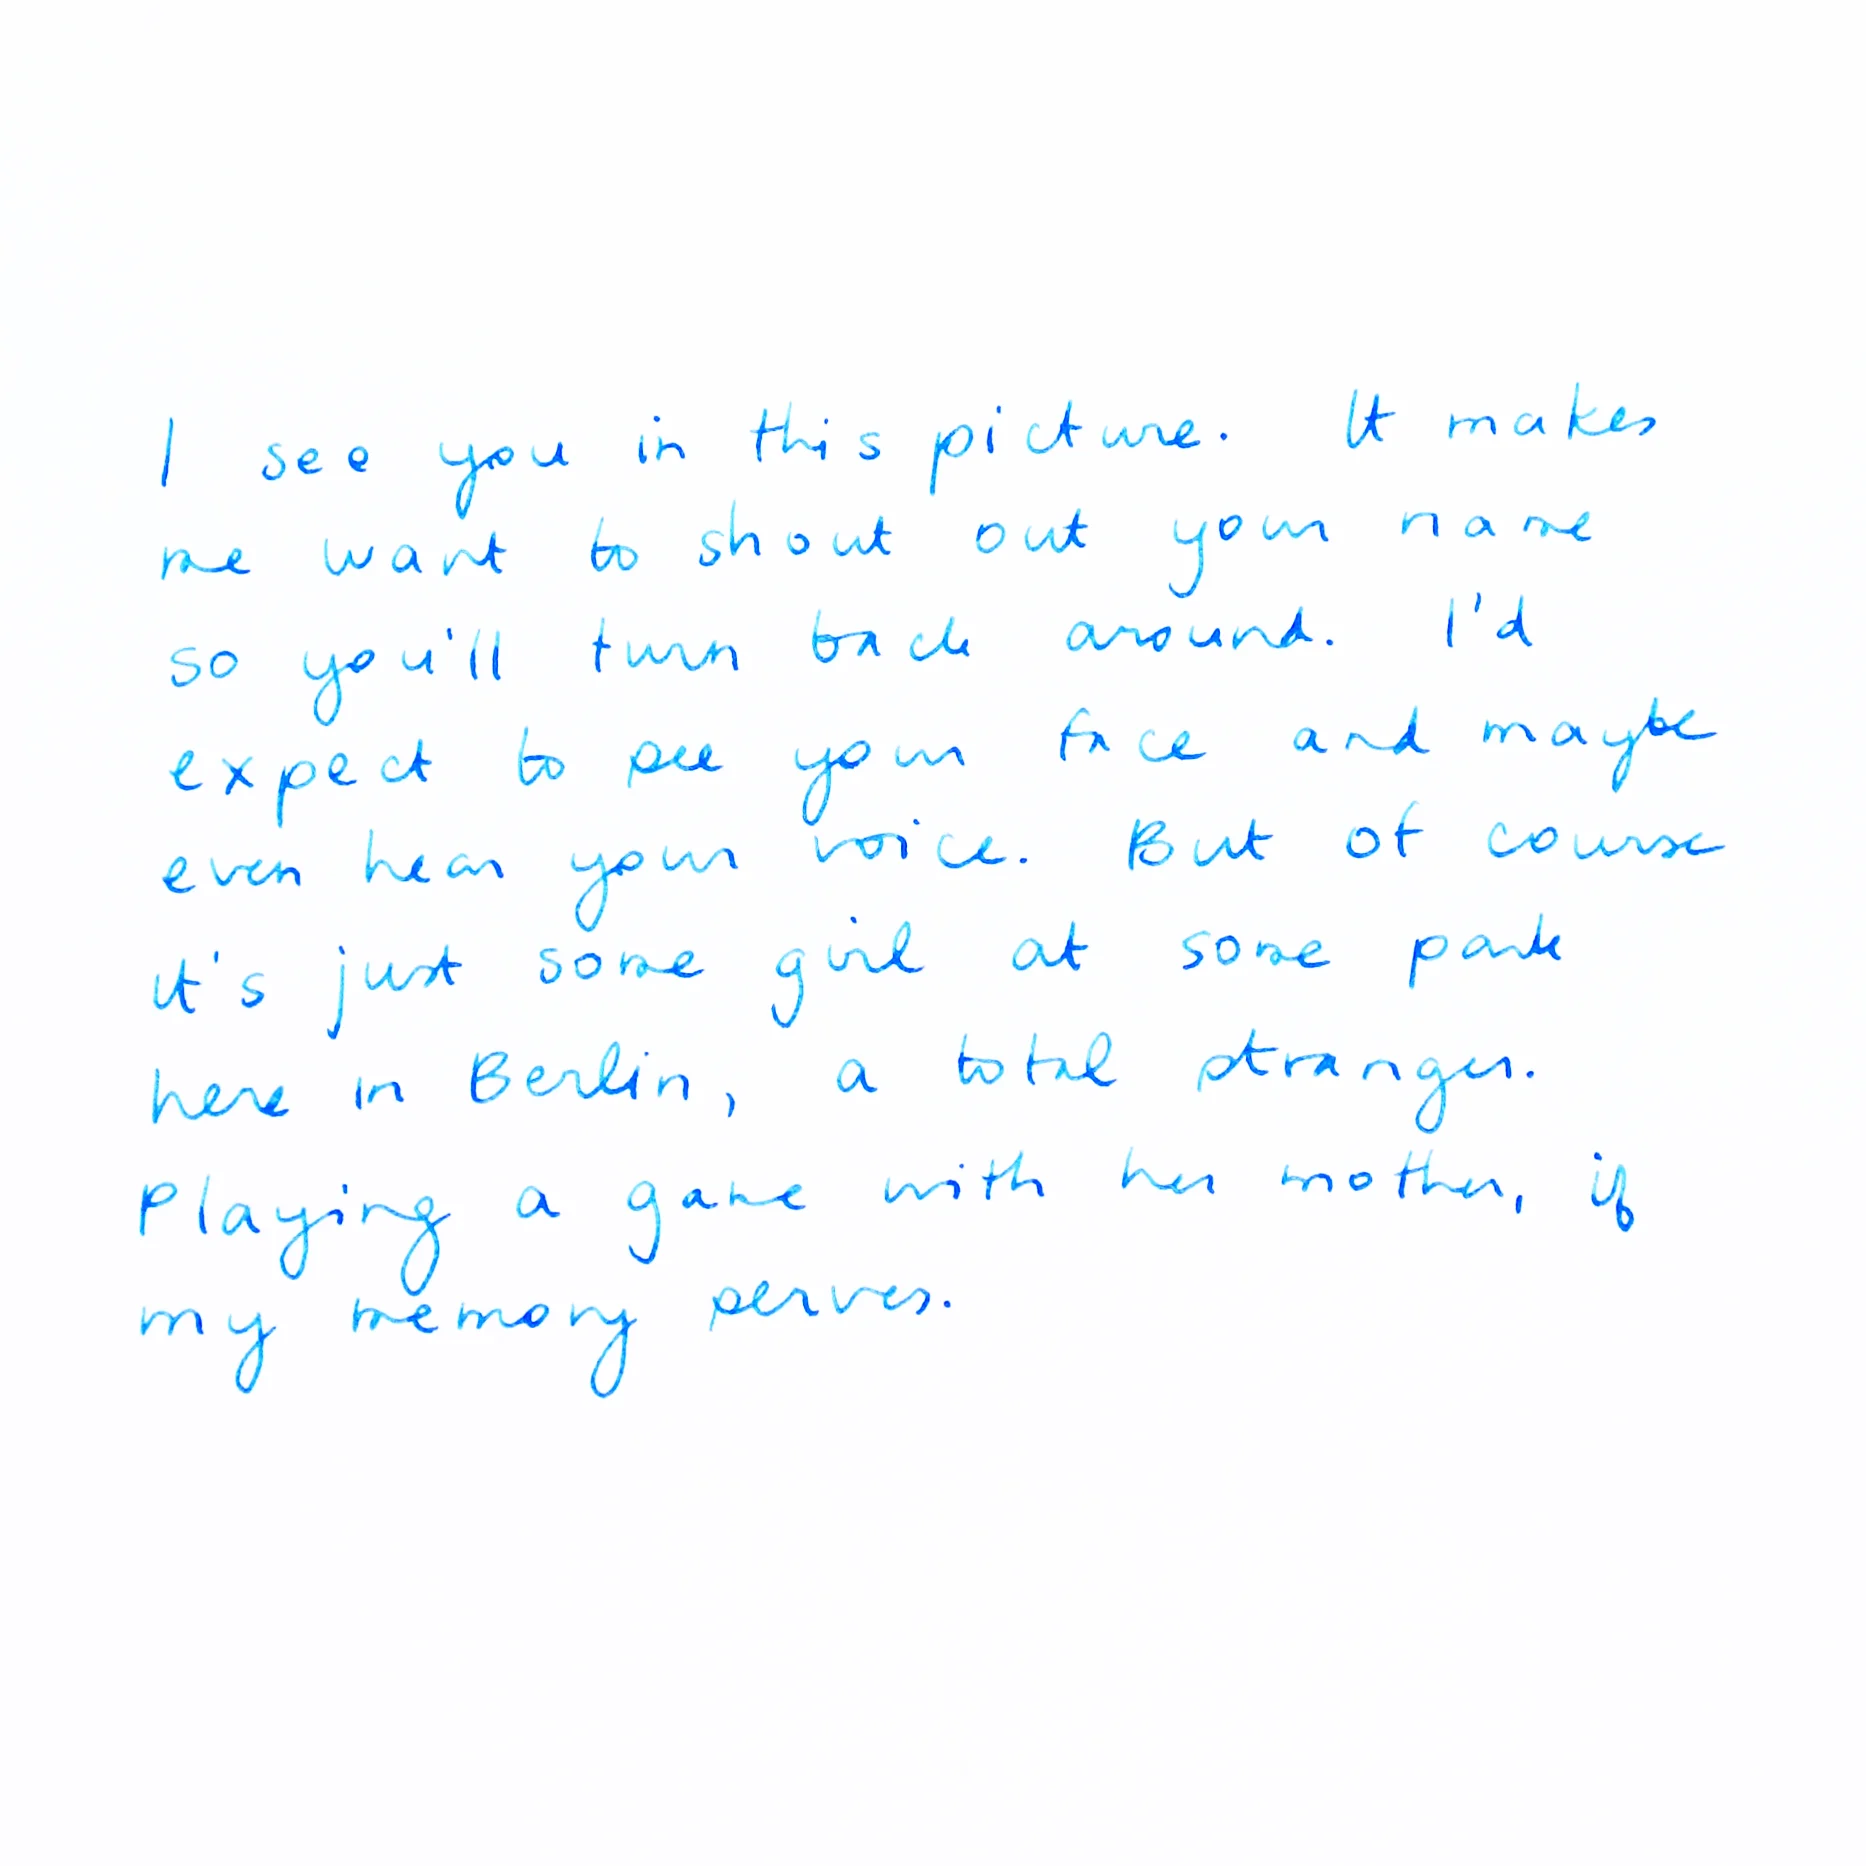 I see you in this picture. It makes
me want to shout out your name
so you'll turn back around. I'd
expect to see your face and maybe
even hear your voice. But of course
it's just some girl at some park
here in Berlin, a total stranger.
Playing a game with her mother, if
my memory serves.